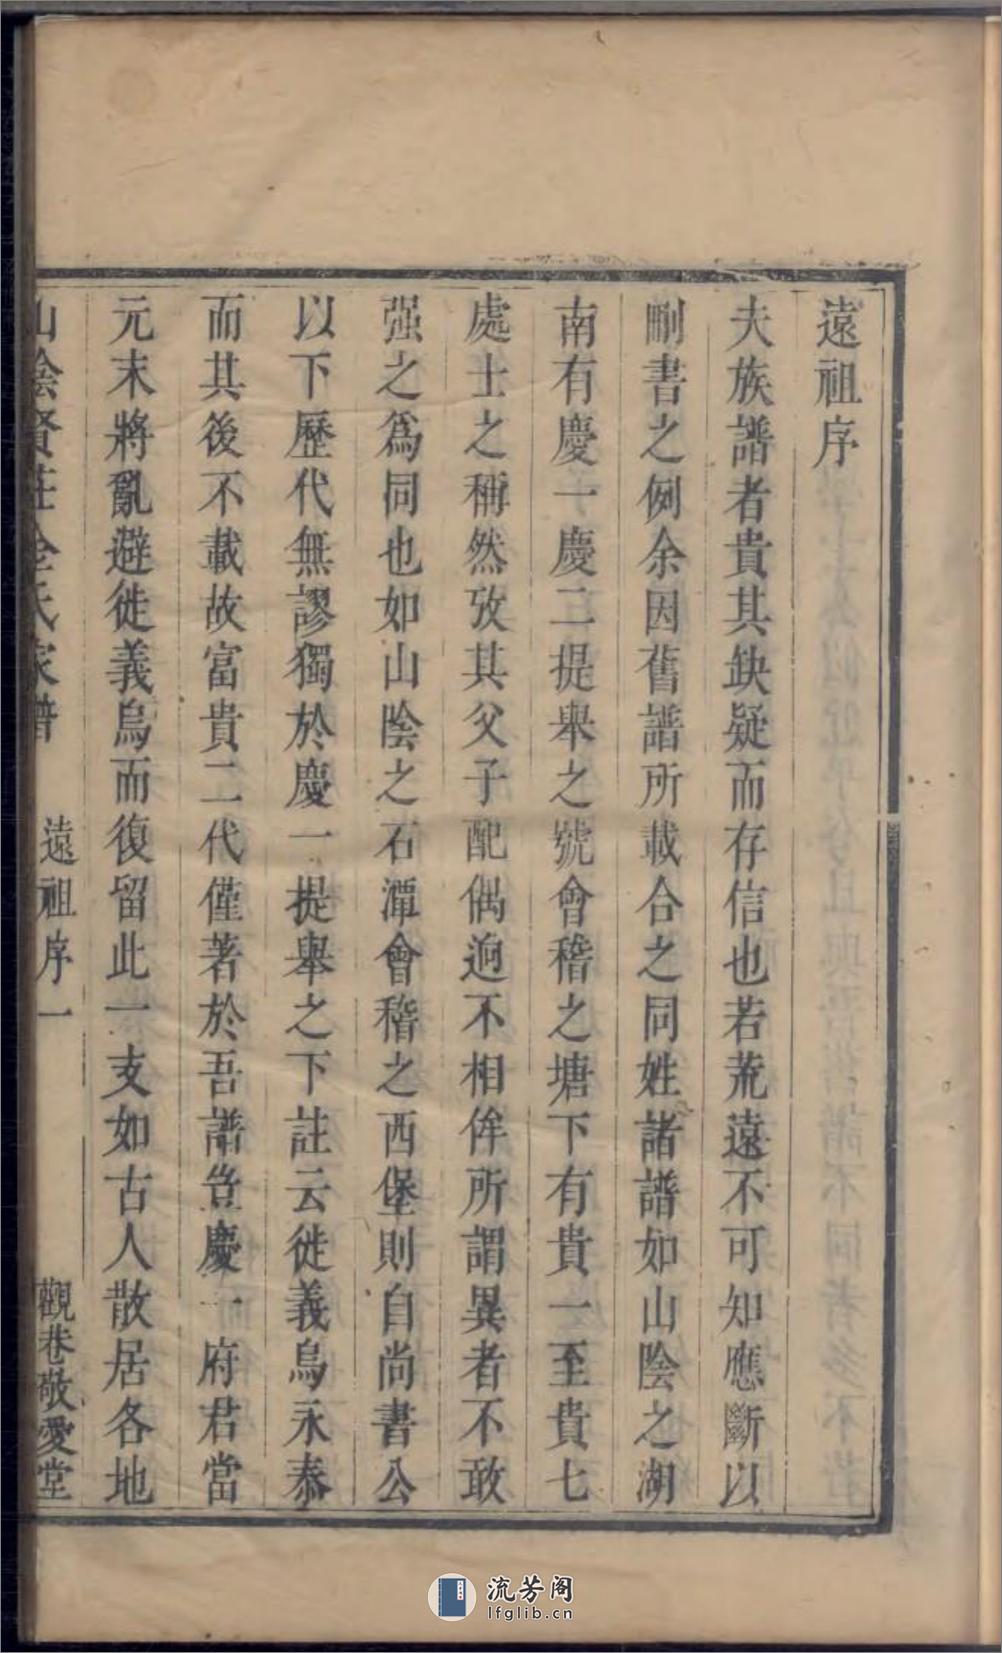 遠祖序
夫族譜者貴其缺疑而存信也若荒遠不可知應斷以
刪書之例余因舊譜所載合之同姓諸譜如山陰之湖
南有慶一慶二提舉之號會稽之塘下有貴一至貴七
處士之稱然攷其父子配偶逈不相侔所謂異者不敢
强之爲同也如山陰之石潭會稽之西堡則自尚書公
以下歷代無謬獨於慶一提舉之下註云徙義烏永泰
而其後不載故富貴二代僅著於吾譜豈慶一府君當
元末將亂避徙義烏而復留此一支如古人散居各地
山陰賢莊金氏家譜 遠祖序一 觀巷敬愛堂
流芳阁
lfglib.cn